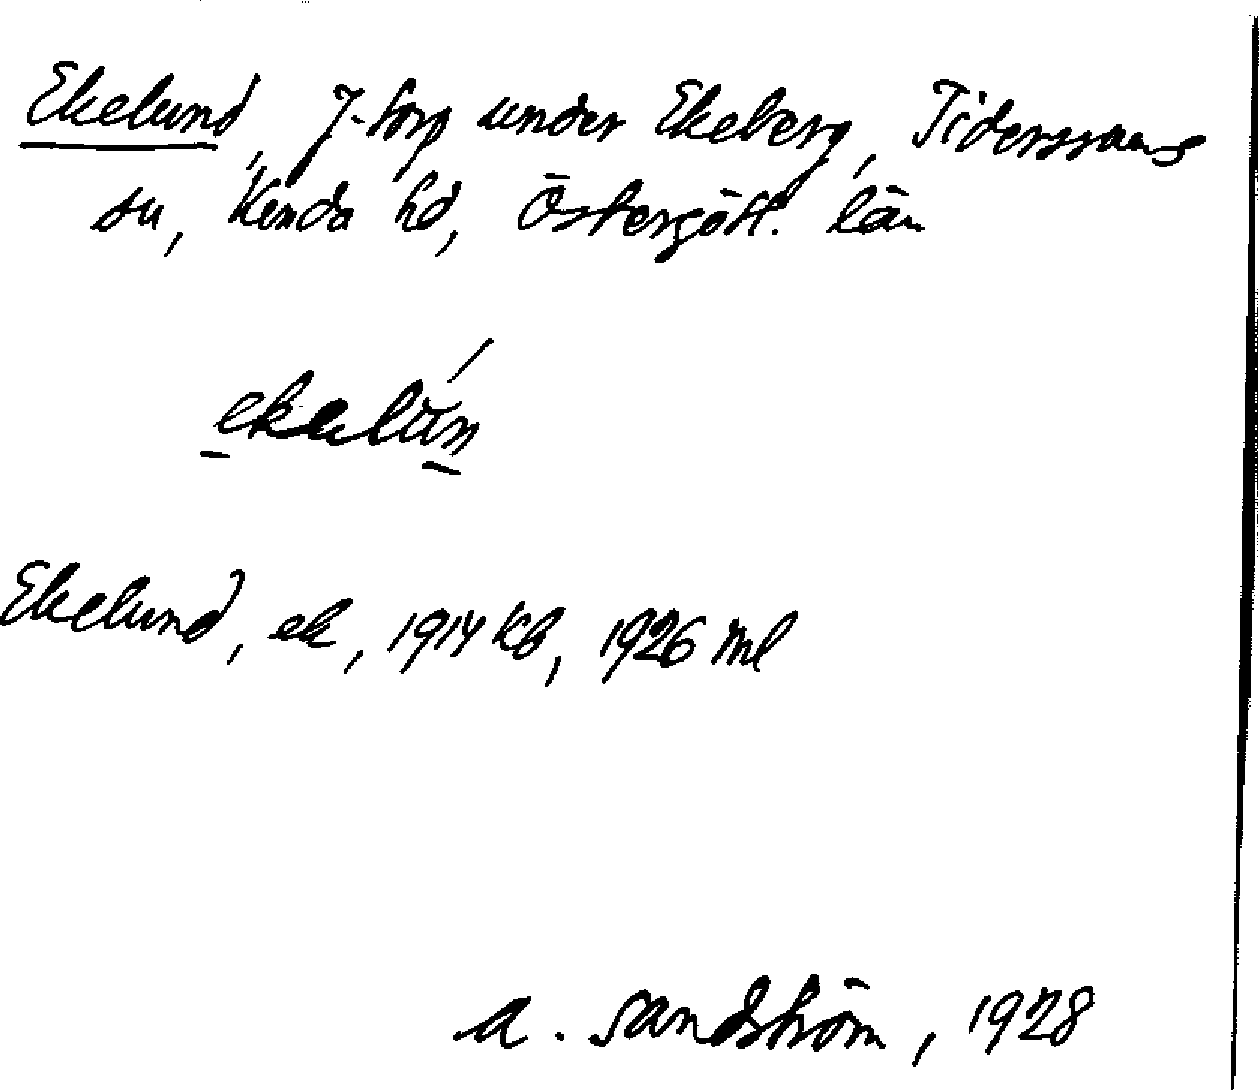 Ekelund, J-torp under Ekeberg, Tidersrums
sn, Kinda hd, Östergötl. län
ekelun
Ekelund, ek, 1914 kb, 1926 ml
A. Sandström, 1928